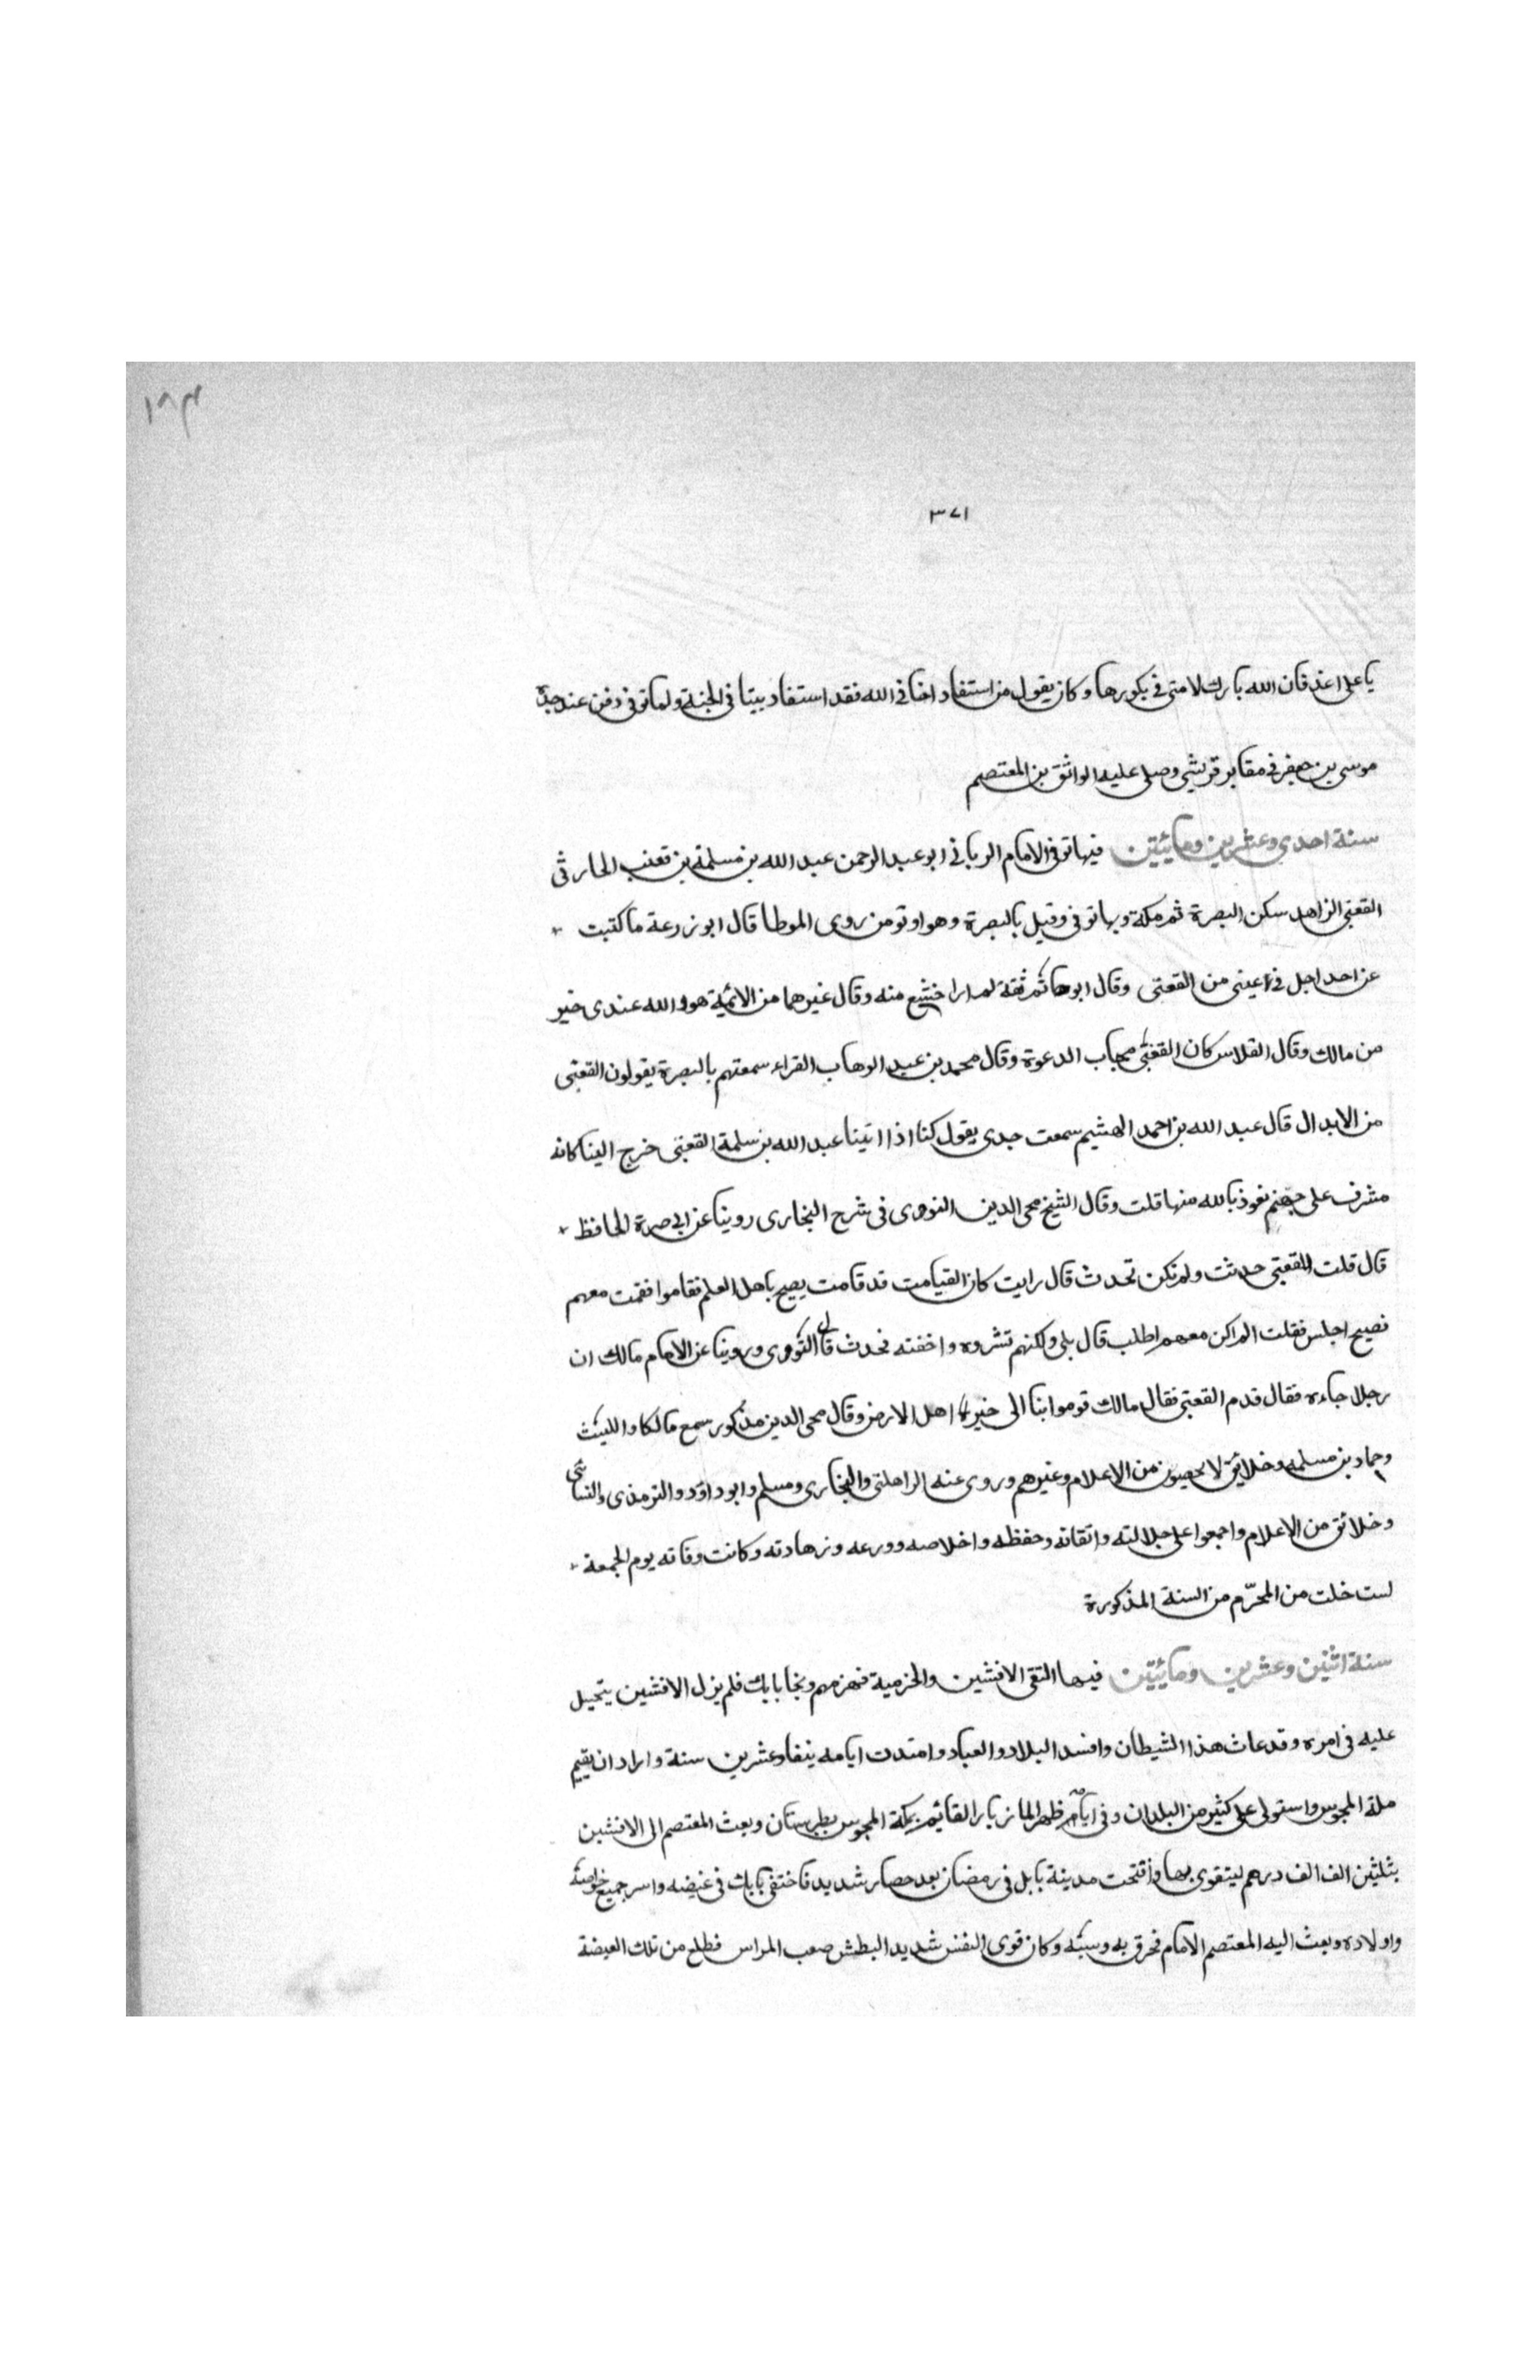 ١٨٣
٣٧١
يا على اغد فان الله بارك لامتى فى بكورها وكان يقول من استفاد اخا فى الله فقد استفاد بيتا فى الجنة ولما توفى دفن عند جده
موسى بن جعفر فى مقابر قريش وصلى عليه الواثق بن المعتصم
سنة احدى وعشرين ومائيتن فيها توفى الامام الربانى ابو عبد الرحمن عبد الله بن مسلمة بن قعنب الحارثى
القعنبى الزاهد سكن البصرة ثم مكة وبها توفى وقيل بالبصرة وهو اوثق من روى الموطا قال ابو زرعة ما كتبت
عن احد اجل فى عينى من القعنبى وقال ابو حاتم ثقة لم ار اخشع منه وقال غيرهما من الائمة هو والله عندى خير
من مالك وقال الفلاس كان القعنبى مجاب الدعوة وقال محمد بن عبد الوهاب الفراء سمعتهم بالبصرة يقولون القعنبى
من الابدال قال عبد الله بن احمد الهشيم سمعت جدى يقول كنا اذا اتينا عبد الله بن سلمة القعنبى خرج الينا كانه
مشرف على جهنم نعوذ بالله منها قلت وقال الشيخ محى الدين النووى فى شرح البخارى روينا عن ابى صرة الحافظ
قال قلت للقعنبى حدثت ولم تكن تحدث قال رايت كان القيامت قد قامت يصيح باهل العلم فقاموا فقمت معهم
فصيح اجلس فقلت الم اكن معهم اطلب قال بلى ولكنهم نشروه واخفته فحدث قال النووى وروينا عن الامام مالك ان
رجلا جاءه فقال قدم القعنبى فقال مالك قوموا بنا الى خير اهل الارض وقال محى الدين مذكور سمع مالكا والليث
وحماد بن مسلمه وخلايق لا يحصون من الاعلام وغيرهم وروى عنه الراهلتى والبخارى ومسلم وابو داود والترمذى والنسائى
وخلائق من الاعلام واجمعوا على جلالته واتقانه وحفظه واخلاصه وورعه وزهادته وكانت وفاته يوم الجمعة
لست خلت من المحرّم من السنة المذكورة
سنة اثنين وعشرين ومائيتن فيها التقى الافشين والخرمية فهزمهم ونجا بابك فلم يزل الافشين يتحيل
عليه فى امره وقد عاث هذا الشيطان وافسد البلاد والعباد وامتدت ايامه نيفا وعشرين سنة واراد ان يقيم
ملة المجوس واستولى على كثير من البلدان وفى ايامه ظهر المازيار القائم بملة المجوس بطبرستان وبعث المعتصم الى الافشين
بثلثين الف الف درهم ليتقوى بها وافتحت مدينة بابل فى رمضان بعد حصار شديد فاختفى بابك فى غيضه واسر جميع خواصه
واولاده وبعث اليه المعتصم الامام فخرق به وسبّه وكان قوى النفس شديد البطش صعب المراس فطلع من تلك الغيضة